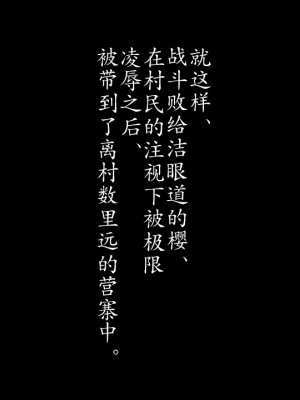 就这样、
战斗败给洁眼道的樱、
在村民的注视下被极限
凌辱之后、
被带到了离村数里远的营寨中。